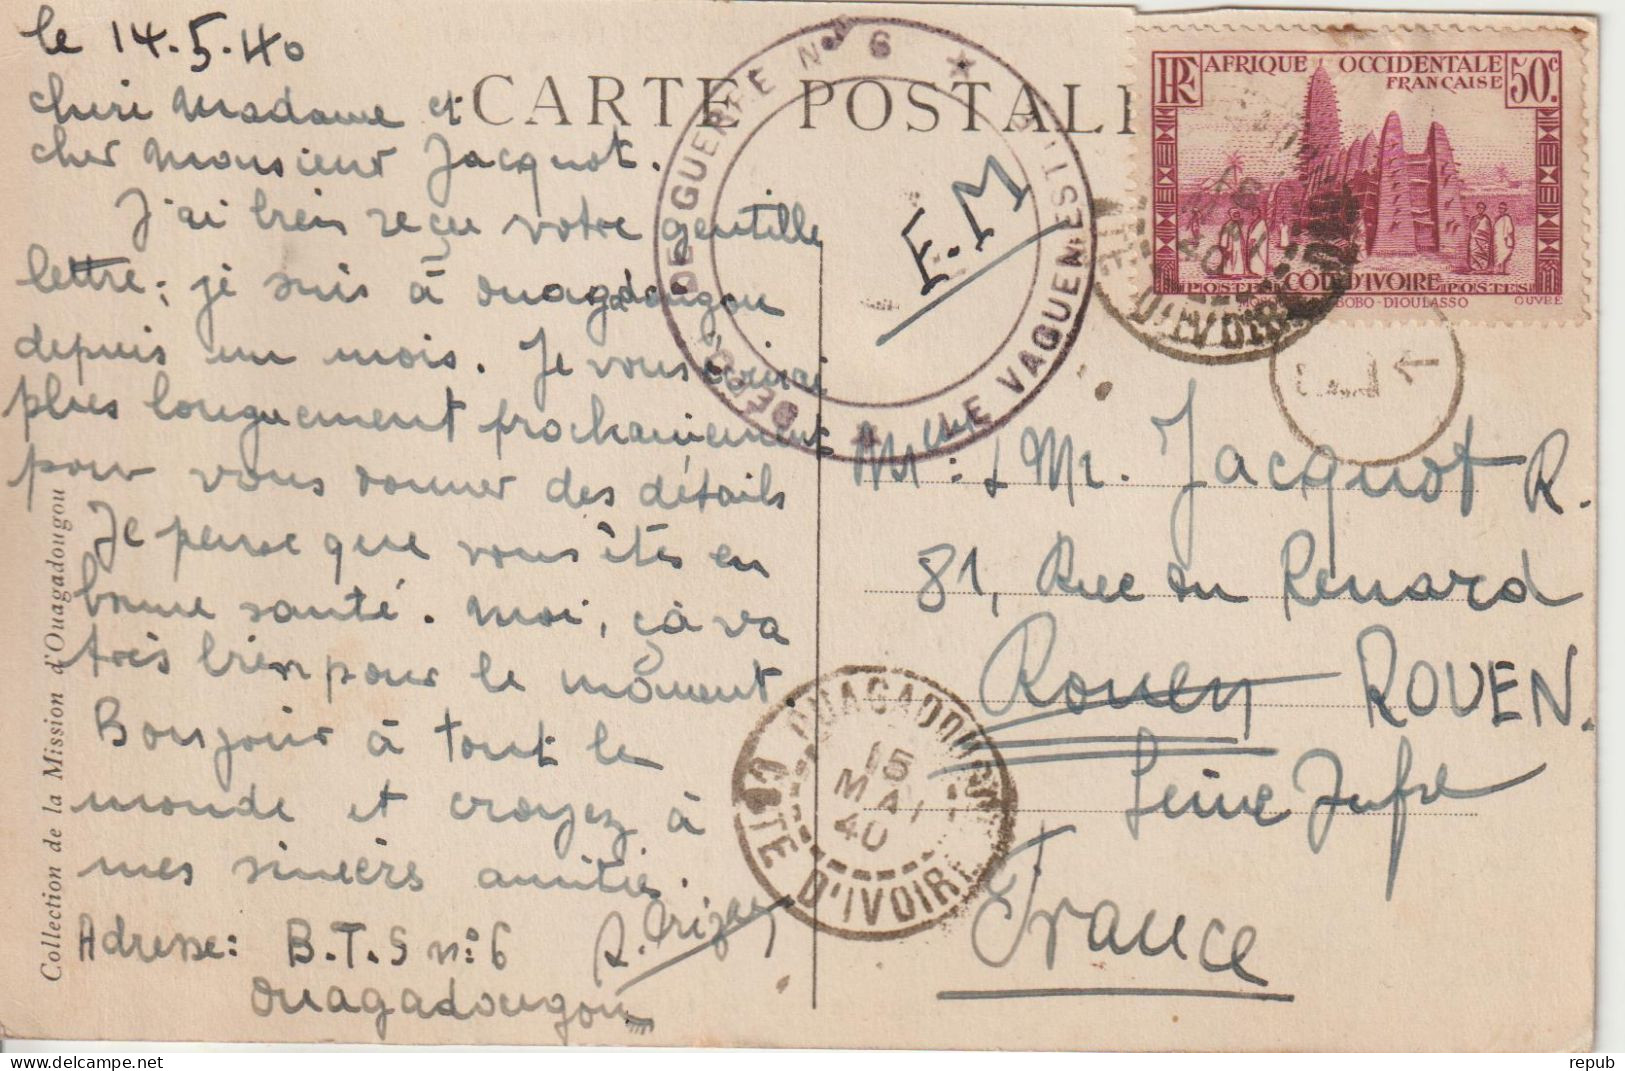 le 14.5.40
CARTE POSTALE
chèri Madame et
cher Monsieur Jacquot.
J'ai bien reçu votre gentille
lettre; je suis à Ouagadougou
depuis un mois. Je vous écrirai
plus longuement prochainement
pour vous donner des détails
Je pense que vous êtes en
bonne santé. Moi, çà va
très bien pour le moment.
Bonjour à tout le
monde et croyez à
mes sincères amitiés.
Adresse: B.T.S n:6
Ouagadougou
Collection de la Mission d'Ouagadougou
DÉPÔT DE GUERRE N° 6 ★
LE VAGUEMESTRE ★
F.M
RF AFRIQUE OCCIDENTALE
FRANÇAISE 50c.
CÔTE D'IVOIRE
POSTES POSTES
BOBO-DIOULASSO
D'IVOIRE
Mme: & Mr. Jacquot R.
81, Rue du Renard
Rouen ROUEN.
Seine Infre
France
OUAGADOUGOU
15
MAI
40
CÔTE D'IVOIRE
repub